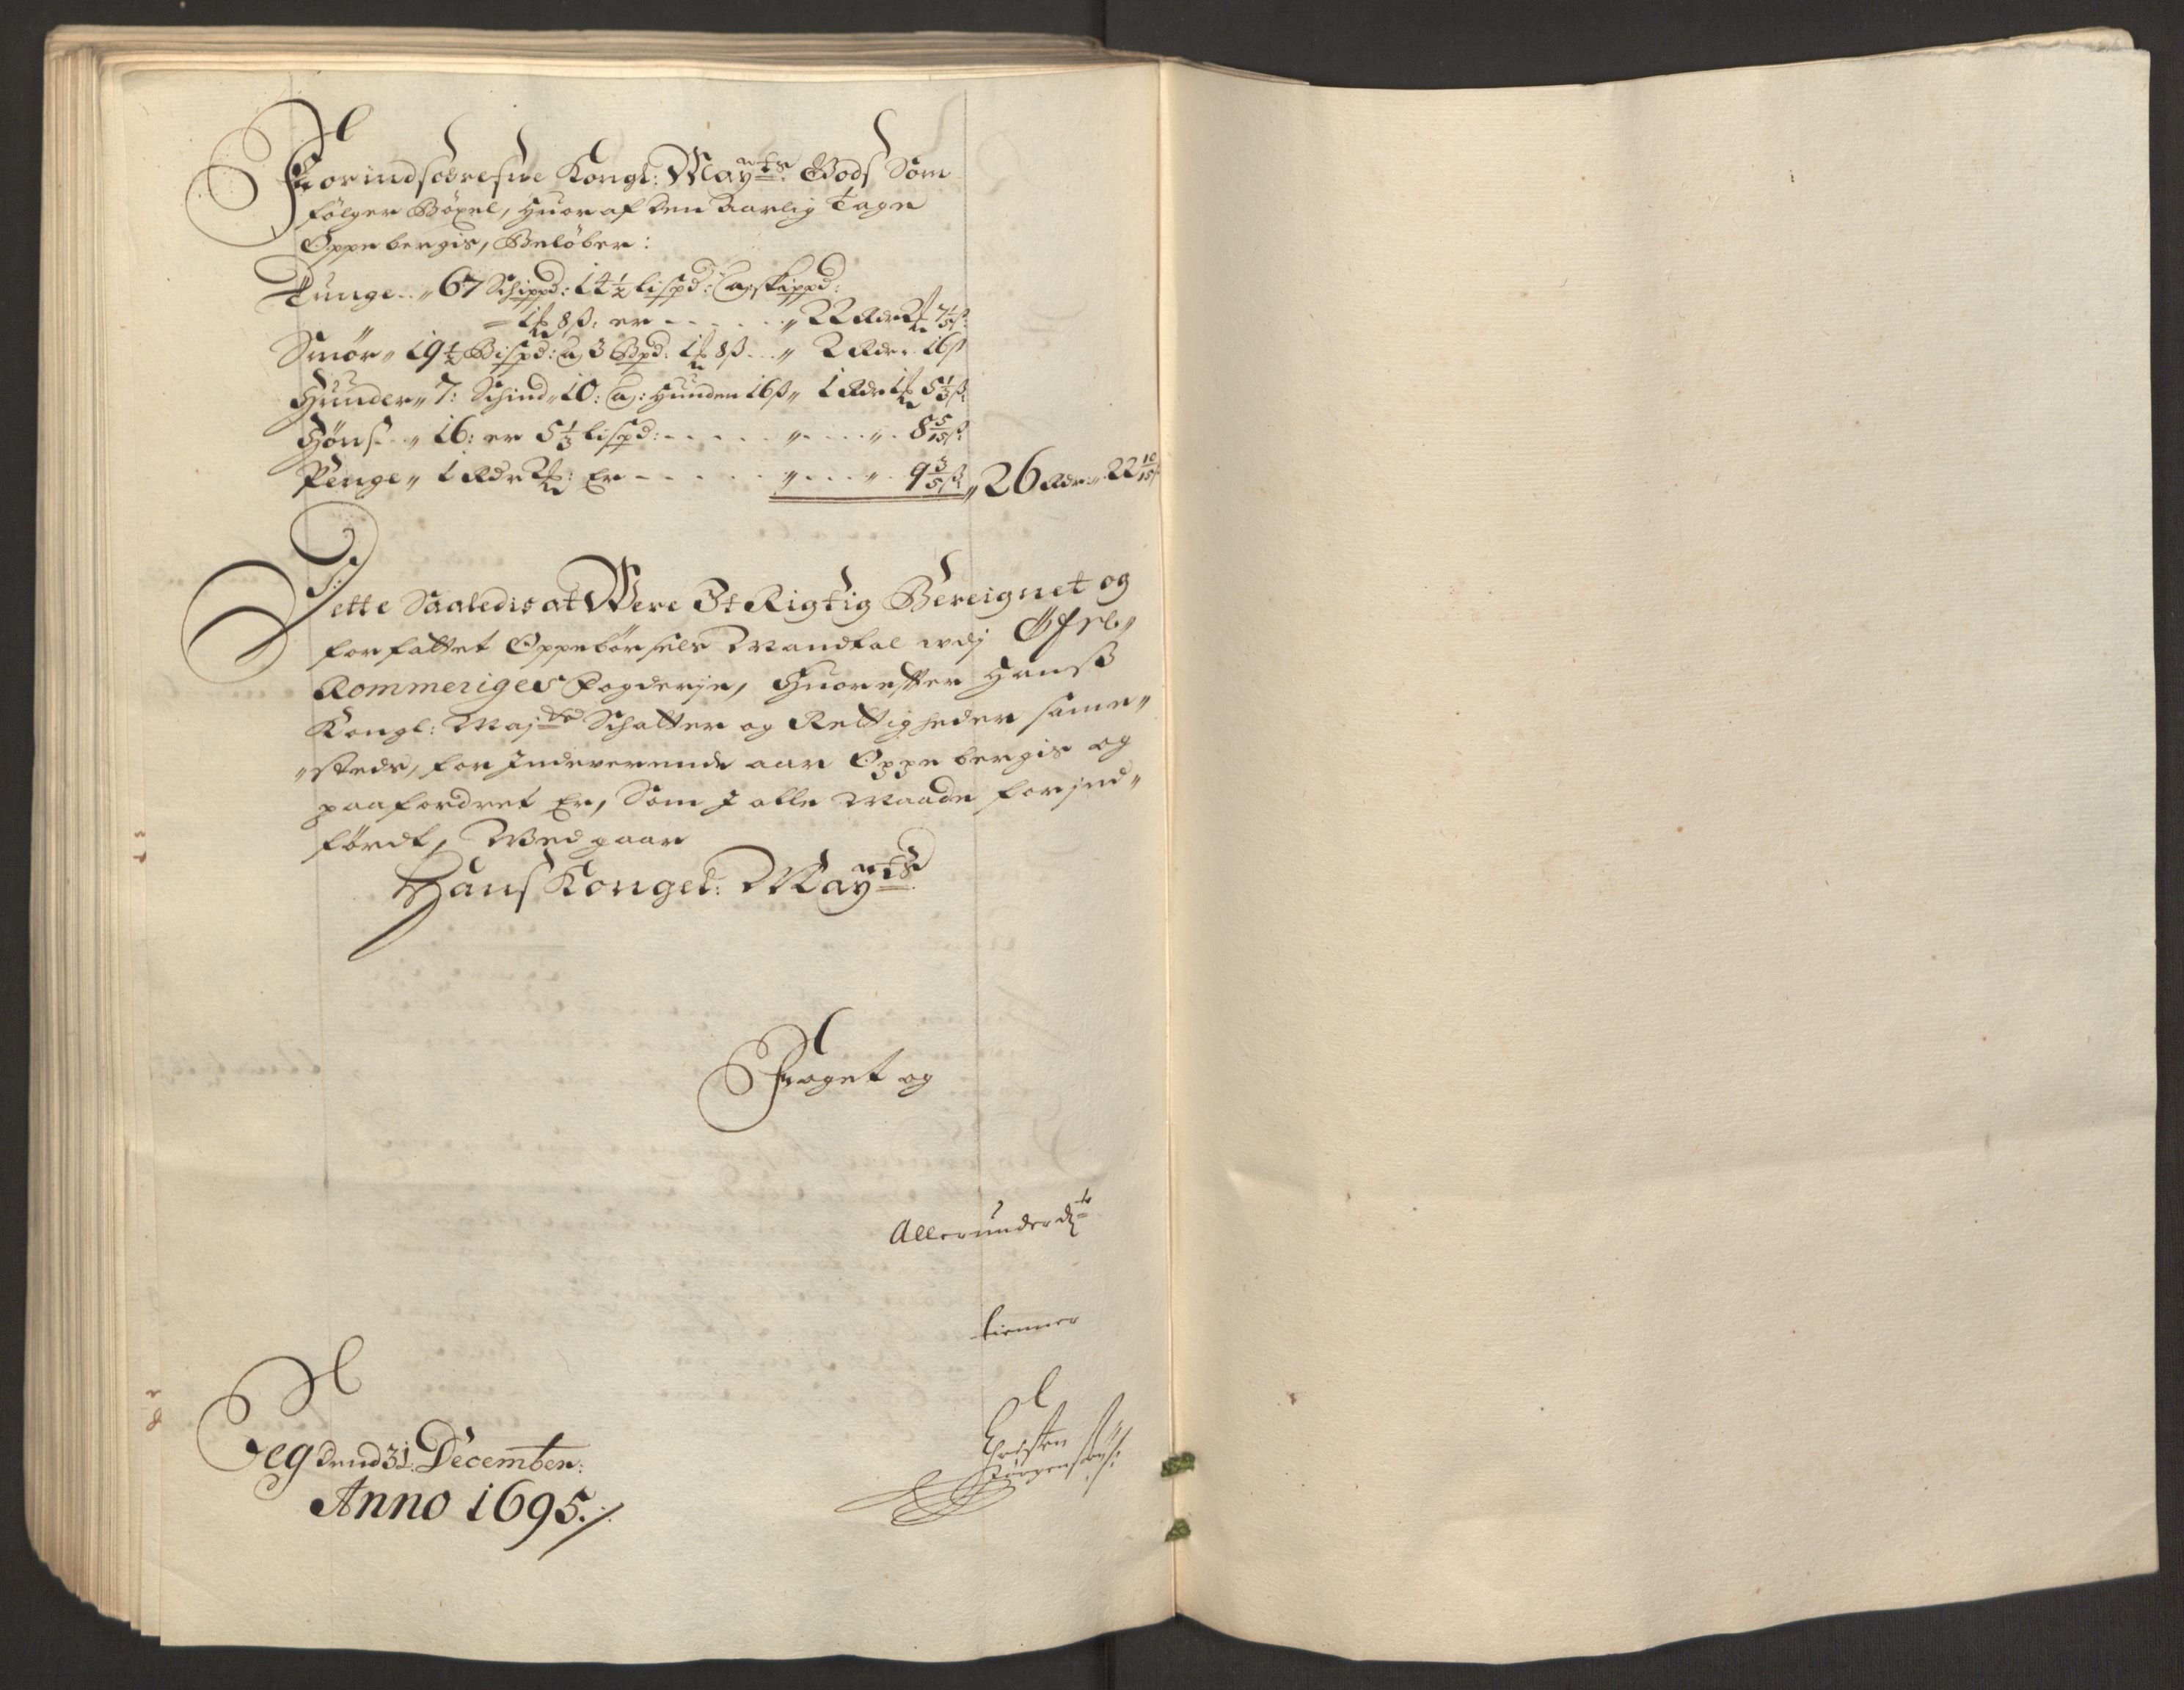 Forindschrefne Kongl: May:ts Gods Som
følger Böxel, Huor af den Aarlig Tage
Oppebergis, Beløber:
Tunge .. 67 Schippd: 14½ lispd: a schippd:
1 ƒ 8 ß: er - - - - - 22 Rdr 2 ƒ 7 1/5 ß:
Smör 19½ Bispd: a 3 Bpd: 1 ƒ 8 ß .. 2 Rdr. 16 ß
Huuder 7: Schind 10: a: Huuden 16 ß 1 Rdr 1 ƒ 5⅓ ß:
Höns .. 16: er 5⅓ lispd: - - - - - 8 5/15 ß:
Penge 1 Rdr 2 ƒ: Er - - - - - 9 3/5 ß: 26 Rdr 22 10/15 ß
Dette Saaledis at Were Et Rigtig Bereignet og
forfattet Oppebörsels Mandtal udj Öfre
Rommeriges Fogderje, Huorefter Hanß
Kongl: Maj:ts Schatter og Rettigheder samme
steds, for Indeverende aar Oppebergis og
paafordret Er, Som I alle Maade forind
fördt, Wedgaar
Hans Kongel: May:ts
Foget og
Allerunderd:te
tienner
Eeg dend 31 December:
Anno 1695.